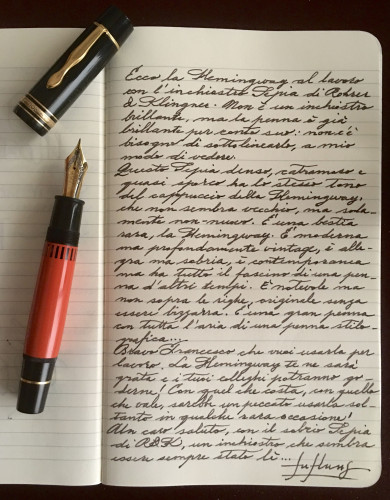 Ecco la Hemingway al lavoro
con l'inchiostro Sepia di Rohrer
& Klingner. Non è un inchiostro
brillante, ma la penna è già
brillante per conto suo: non c'è
bisogno di sottolinearlo, a mio
modo di vedere.
Questo Sepia denso, catramoso e
quasi sporco ha lo stesso tono
del cappuccio della Hemingway,
che non sembra vecchio, ma sola-
mente non-nuovo. È una bestia
rara, la Hemingway. È moderna
ma profondamente vintage, è alle-
gra ma sobria, è contemporanea
ma ha tutto il fascino di una pen
na d'altri tempi. È notevole ma
non sopra le righe, originale senza
essere bizzarra. È una gran penna
con tutta l'aria di una penna stilo-
grafica...
Bravo Francesco che vuoi usarla per
lavoro. La Hemingway te ne sarà
grata e i tuoi colleghi potranno go-
derne! Con quel che costa, con quello
che vale, sarebbe un peccato usarla sol-
tanto in qualche rara occasione!
Un caro saluto, con il solito Sepia
di R&K, un inchiostro che sembra
essere sempre stato lì...